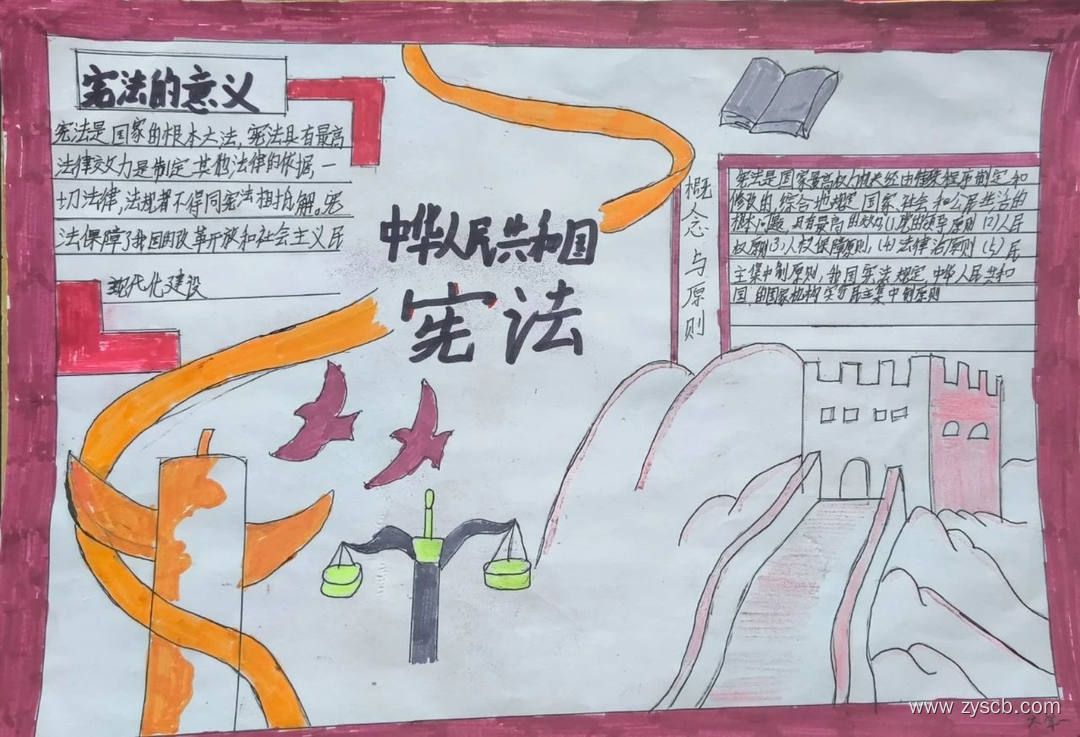 宪法的意义
宪法是国家的根本大法,宪法具有最高
法律效力是制定其他法律的依据,一
切法律,法规都不得同宪法相抵触。宪
法保障了我国的改革开放和社会主义民
现代化建设
中华人民共和国
宪法
概念与原则
宪法是国家最高权力机关经由特殊程序制定和
修改的,综合地规定国家、社会和公民生活的
根本问题,具有最高的效力(1)党的领导原则(2)人民
权原则(3)人权保障原则,(4)法律治原则(5)民
主集中制原则,我国宪法规定中华人民共和
国的国家机构实行民主集中制原则
www.zyscb.com